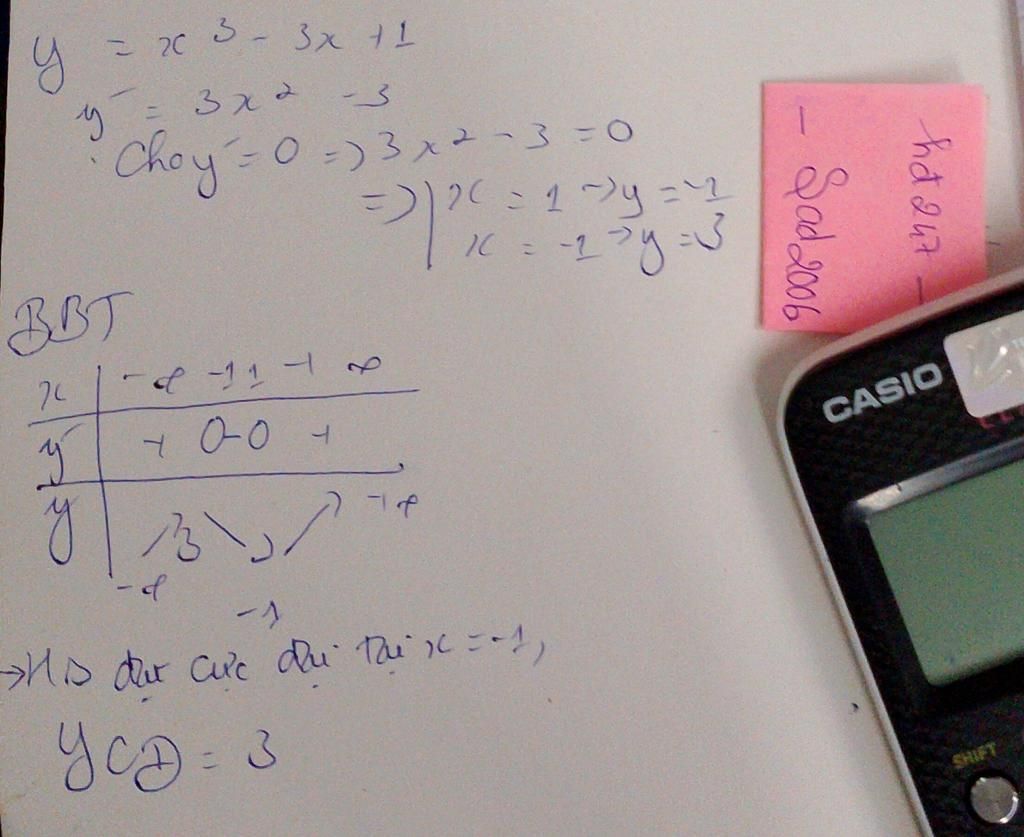 y = x³ - 3x + 1
y' = 3x² - 3
Cho y' = 0 => 3x² - 3 = 0
=> | x = 1 → y = -1
x = -1 → y = 3
BBT
x | -∞ -1 1 +∞
y' | + 0 - 0 +
y | -∞ ↗ 3 ↘ -1 ↗ +∞
→ HS đạt cực đại tại x = -1,
yCĐ = 3
hd 247 -
- Sad2006
CASIO
SHIFT